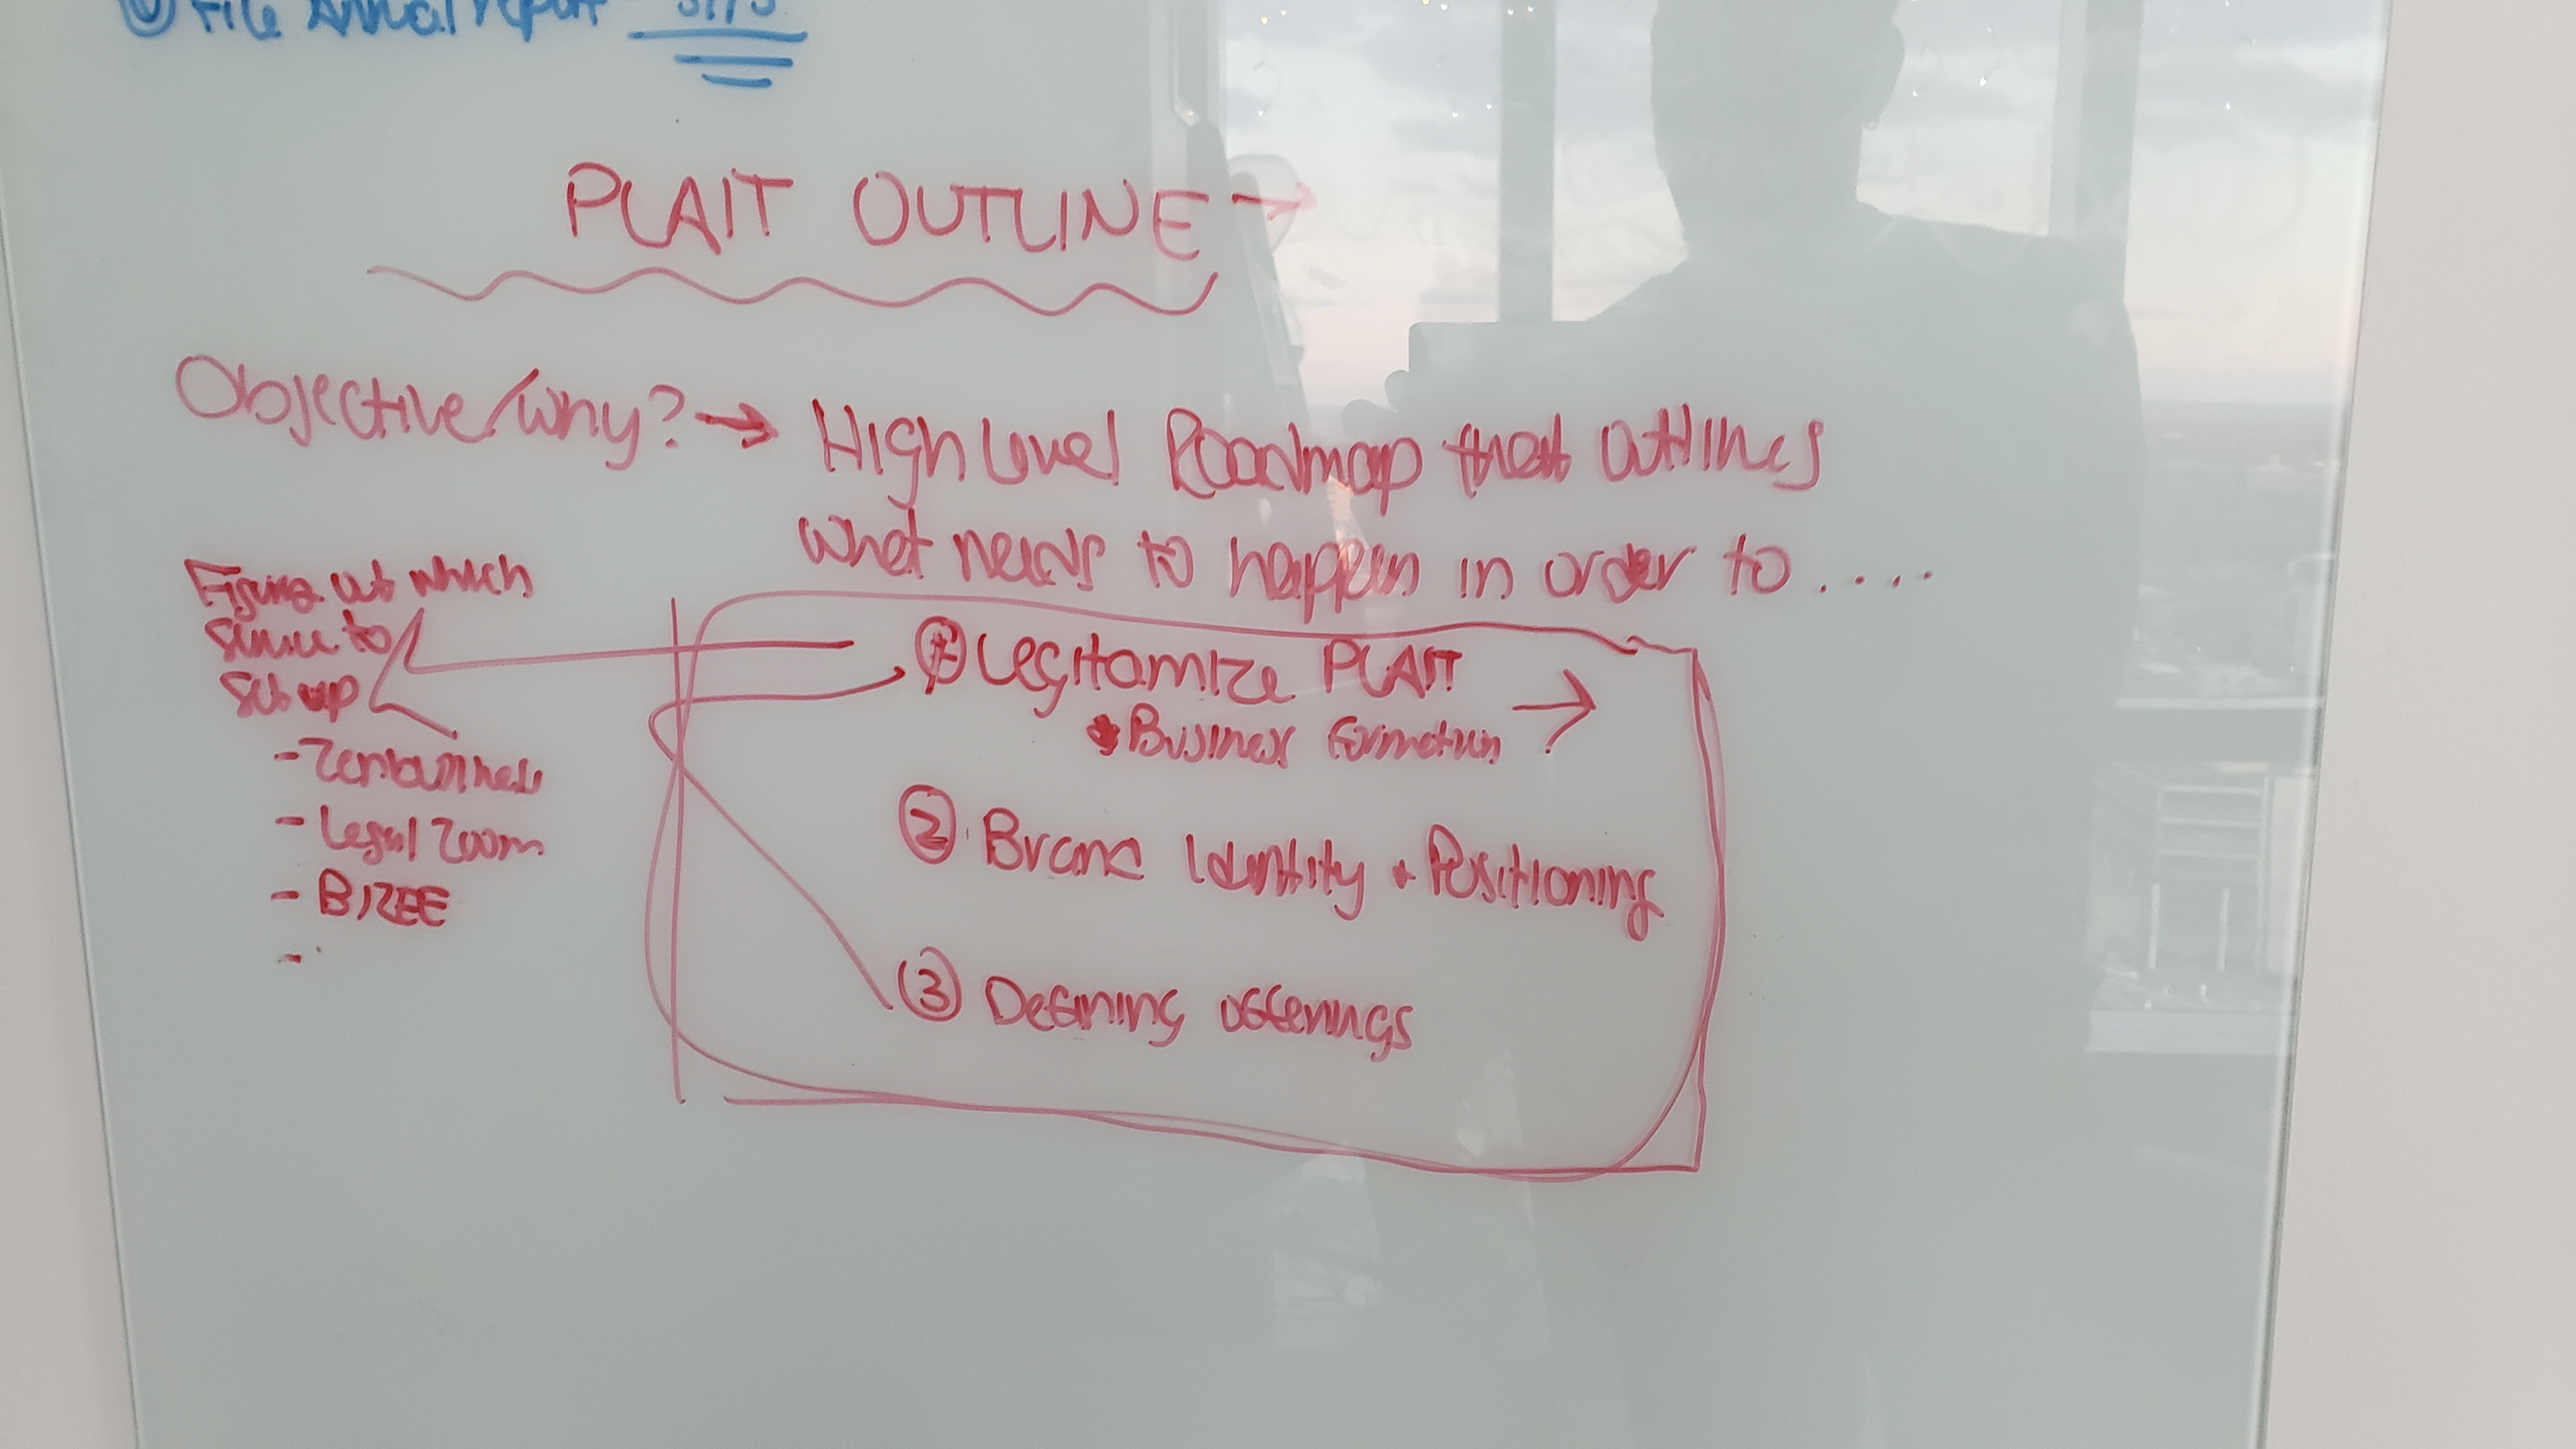 File Annual report
PLAIT OUTLINE →
Objective/why? → High Level Roadmap that outlines
what needs to happen in order to ....
Figure out which
service to
set up
- Zenbusiness
- Legal Zoom
- BIZEE
-
① Legitamize PLAIT →
* Business formation ?
② Brand Identity + Positioning
③ Defining offerings